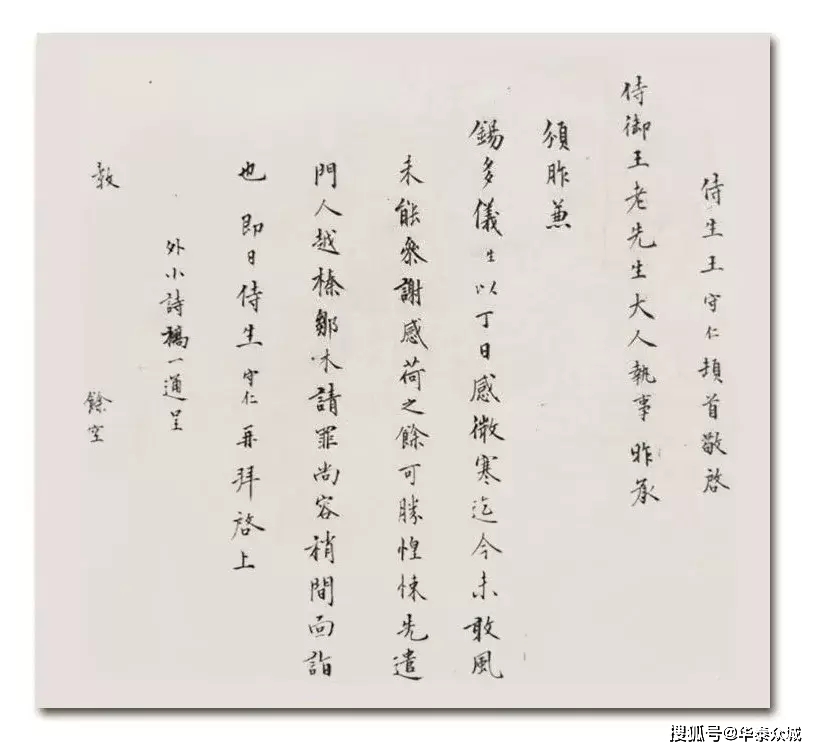 侍生王守仁頓首敬啓
侍御王老先生大人執事昨承
頒胙兼
錫多儀生以丁日感微寒迄今未敢風
未能叅謝感荷之餘可勝惶悚先遣
門人越榛鄒木請罪尚容稍間面詣
也即日侍生守仁再拜啓上
外小詩稿一通呈
教 餘空
搜狐号@华泰众城